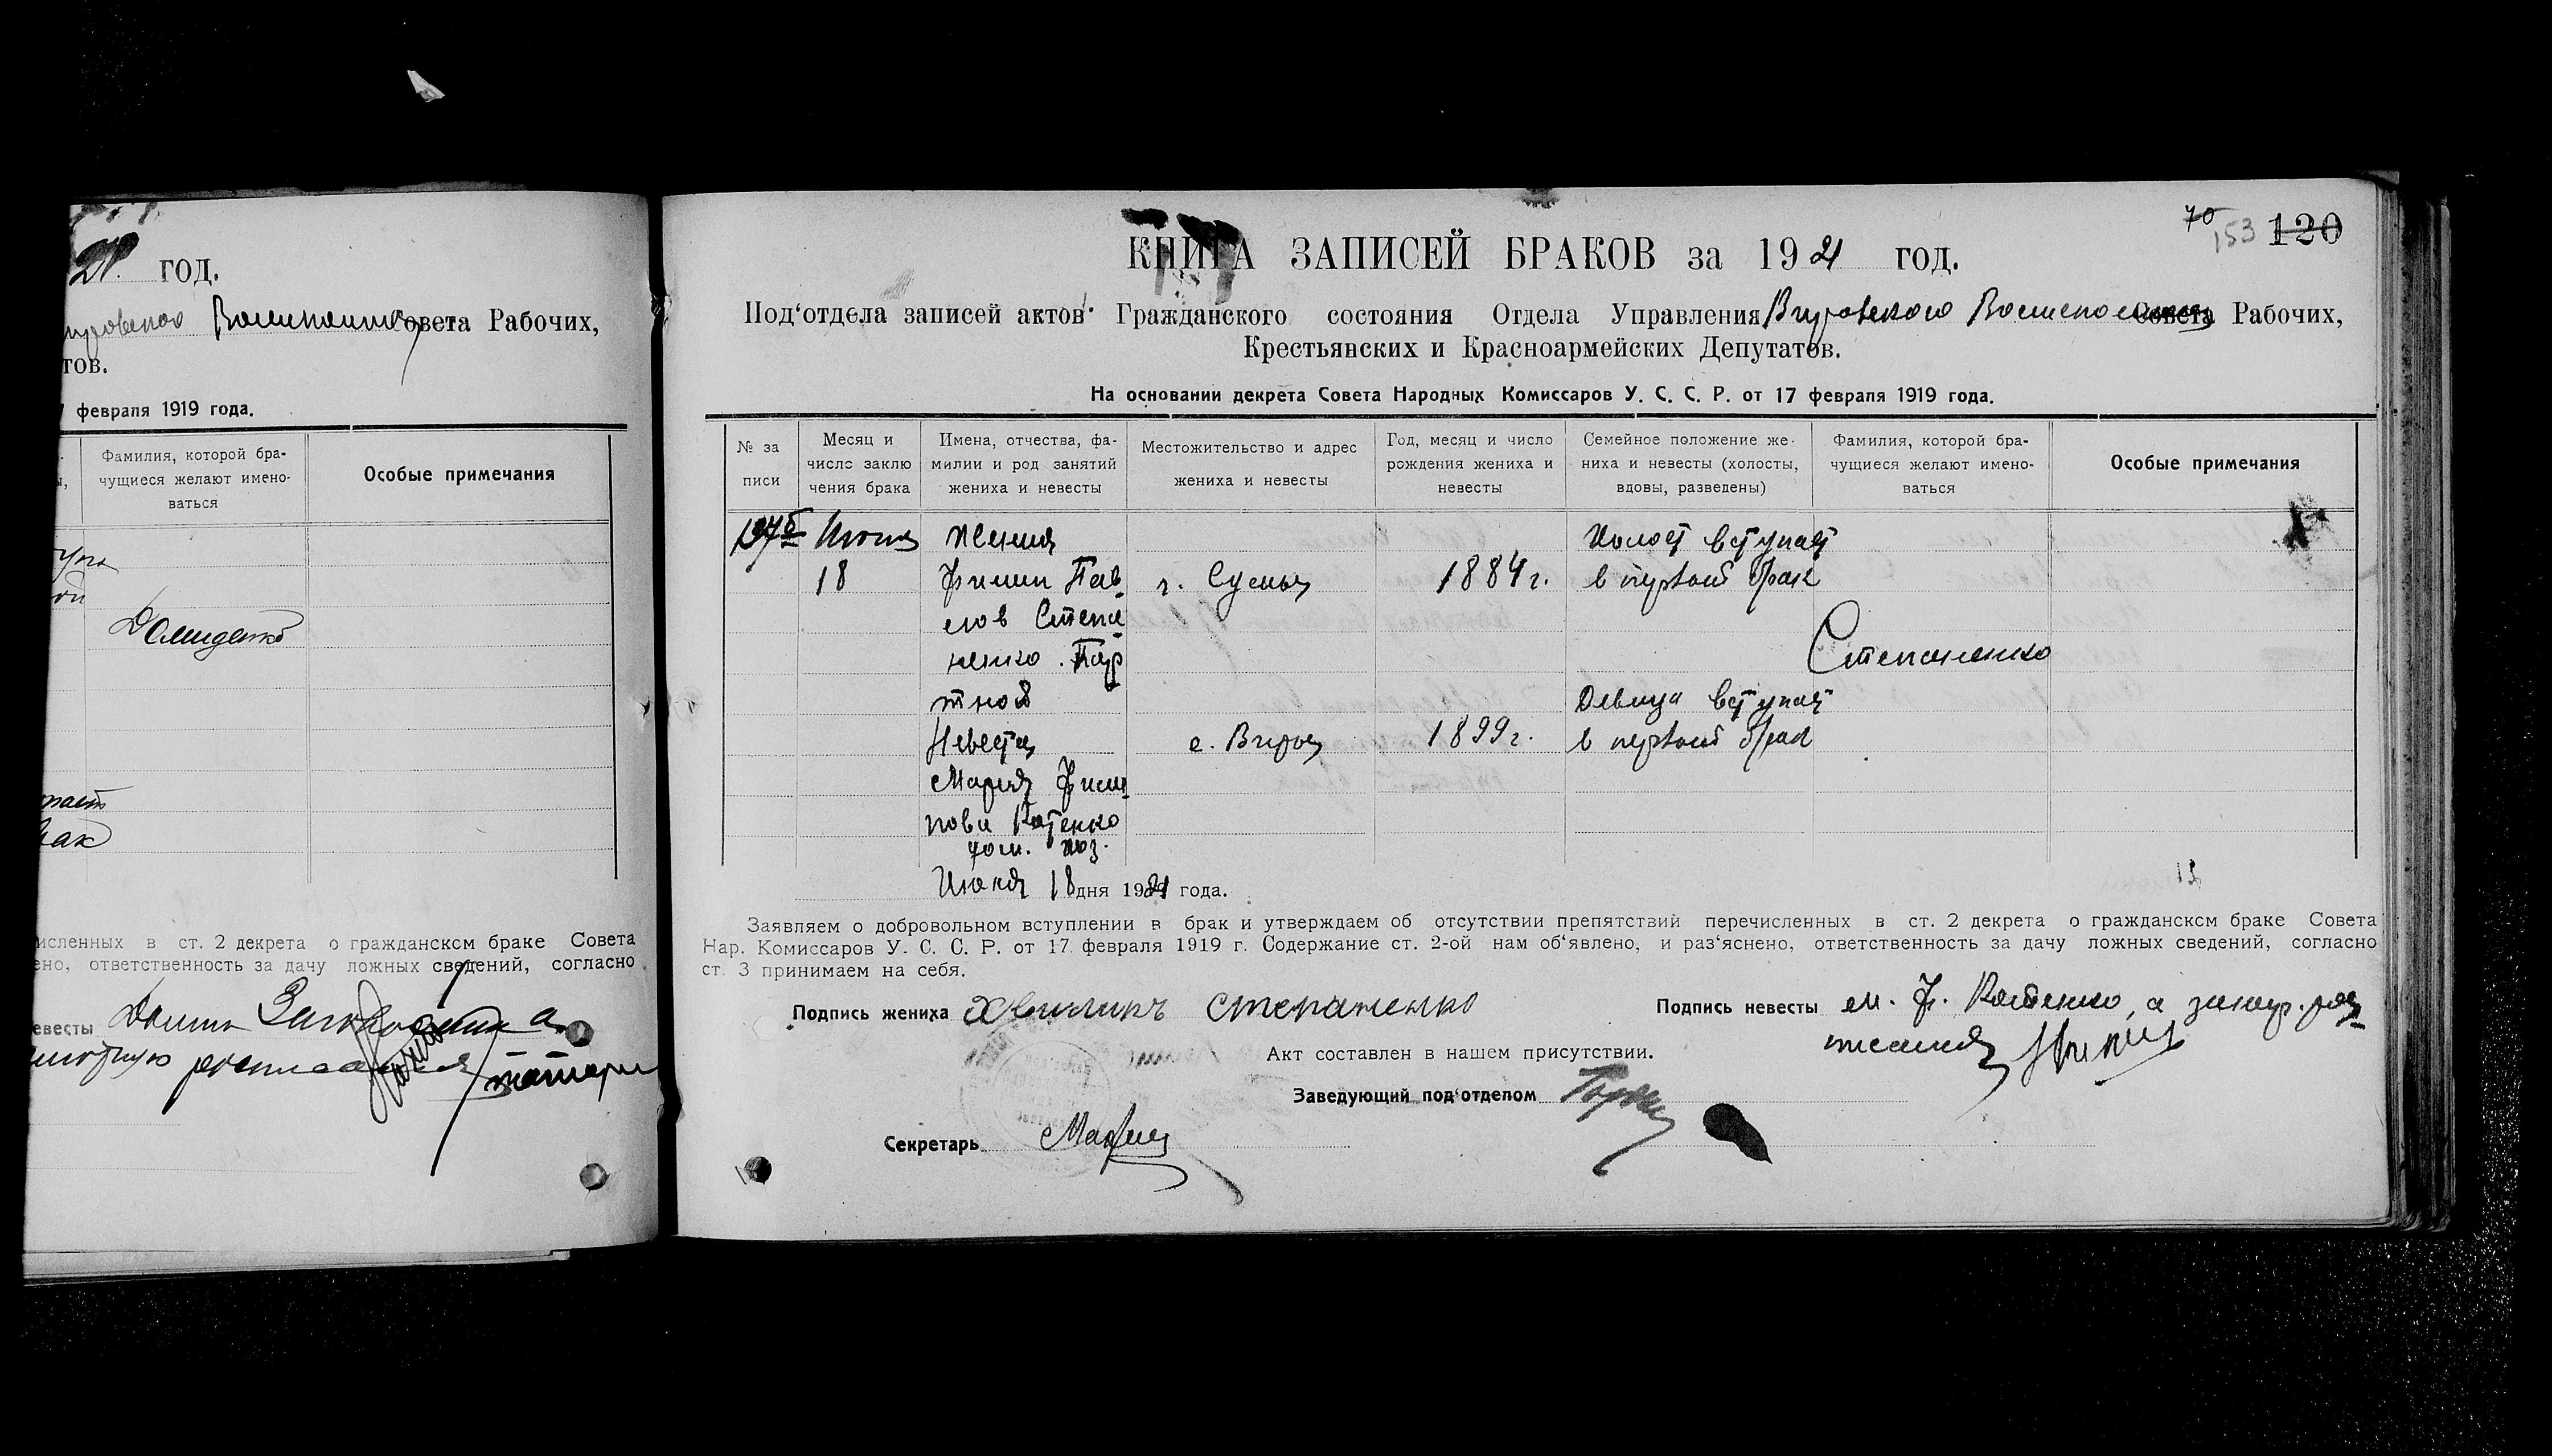 21. год.
Совета Рабочих,
тов.
февраля 1919 года.
Фамилия, которой бра-
чущиеся желают имено-
ваться
Особые примечания
Домиденко
пает
исленных в ст. 2 декрета о гражданском браке Совета
ено, ответственность за дачу ложных сведений, согласно
евесты Домна
70
153
120
КНИГА ЗАПИСЕЙ БРАКОВ за 1921 год.
Под'отдела записей актов Гражданского состояния Отдела Управления Вировского Волисполкома Совета Рабочих,
Крестьянских и Красноармейских Депутатов.
На основании декрета Совета Народных Комиссаров У. С. С. Р. от 17 февраля 1919 года.
№ за
писи
Месяц и
число заклю
чения брака
Имена, отчества, фа-
милии и род занятий
жениха и невесты
Местожительство и адрес
жениха и невесты
Год, месяц и число
рождения жениха и
невесты
Семейное положение же-
ниха и невесты (холосты,
вдовы, разведены)
Фамилия, которой бра-
чущиеся желают имено-
ваться
Особые примечания
Июня Жених Холост вступает
18 Филип Пав г. Сумы 1884 г. в первый брак
лов Степа
ненко. Пор Степаненко
тной Девица вступает
Невеста с. Виры 1899 г. в первый брак
Мария Фили
пова Котенко
дом. хоз.
Июня 18 дня 1921 года.
Заявляем о добровольном вступлении в брак и утверждаем об отсутствии препятствий перечисленных в ст. 2 декрета о гражданском браке Совета
Нар. Комиссаров У. С. С. Р. от 17 февраля 1919 г. Содержание ст. 2-ой нам об'явлено, и раз'яснено, ответственность за дачу ложных сведений, согласно
ст. 3 принимаем на себя.
Подпись жениха Хвилипъ Степаненко
Подпись невесты М. Ф. Котенко, а за негр. рос
писался
Акт составлен в нашем присутствии.
Заведующий под'отделом
Секретарь